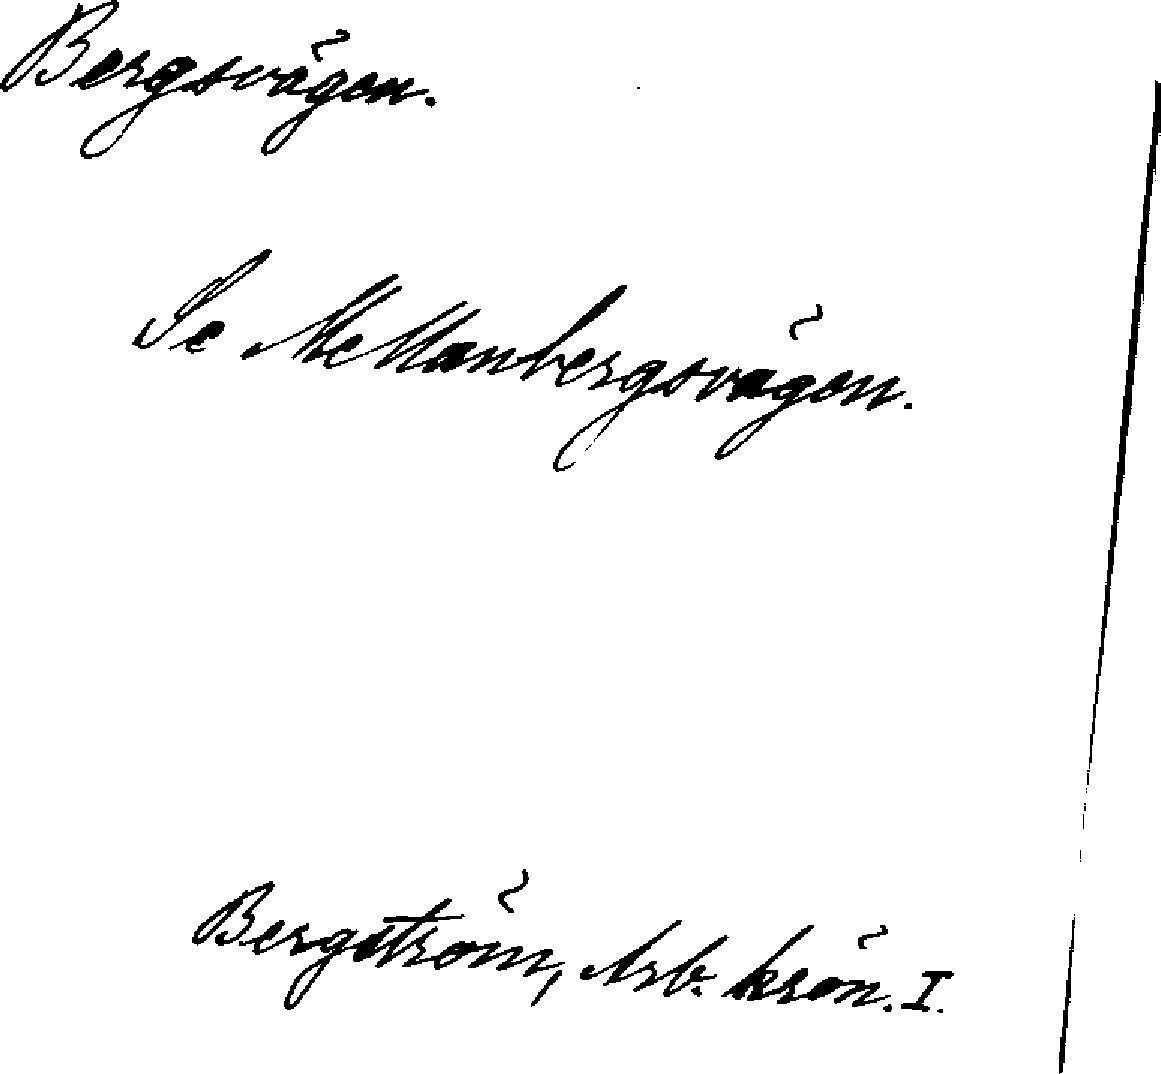 Bergsvägen.
Se Mellanbergsvägen.
Bergström, Arb. krön. I.